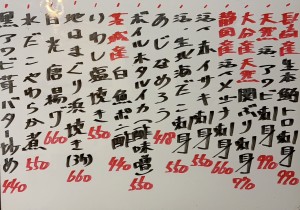 長崎産 生本鮪中トロ刺身 990
天然 活〆アワビ刺身 990
大分産 天然 関ぶり刺身 970
静岡産 天然 刺身 660
活〆赤イサキ刺身 550
活〆生北海だこ刺身 550
あじなめろう 418
ボイルホタルイカ(酢味噌) 550
茨城産 白魚ポン酢 440
いわし塩焼き 550
地はまぐり浜焼き(3ヶ) 660
白魚唐揚げ 660
水だこやわらか煮 550
黒アワビ茸バター炒め 440